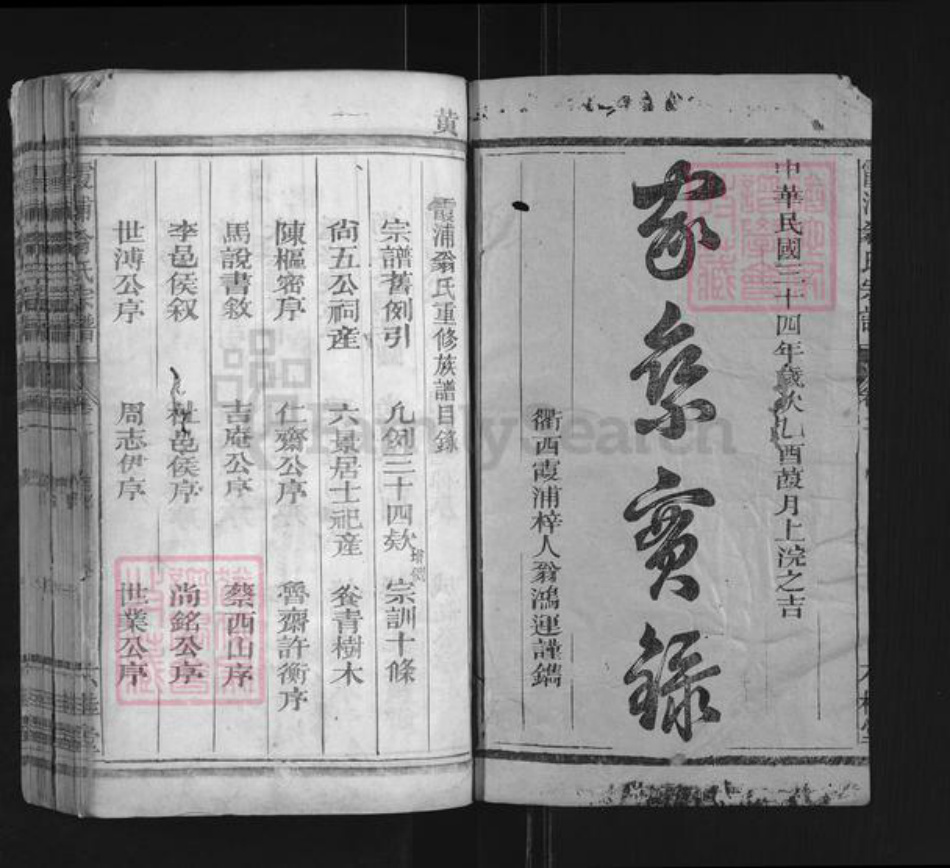 中華民國三十四年歲次乙酉葭月上浣之吉
家乘實錄
衢西霞浦梓人翁鴻運謹鐫
黃
霞浦翁氏重修族譜目錄
宗譜舊例引 凡例三十四欵 宗訓十條
尙五公祠産 六景居士祀産 養青樹木
陳樞密序 仁齋公序 魯齋許衡序
馬說書敘 吉庵公序 蔡西山序
李邑侯叙 杜邑侯序 尚銘公序
世溥公序 周志伊序 世業公序
霞浦翁氏宗譜
六桂堂
FamilySearch